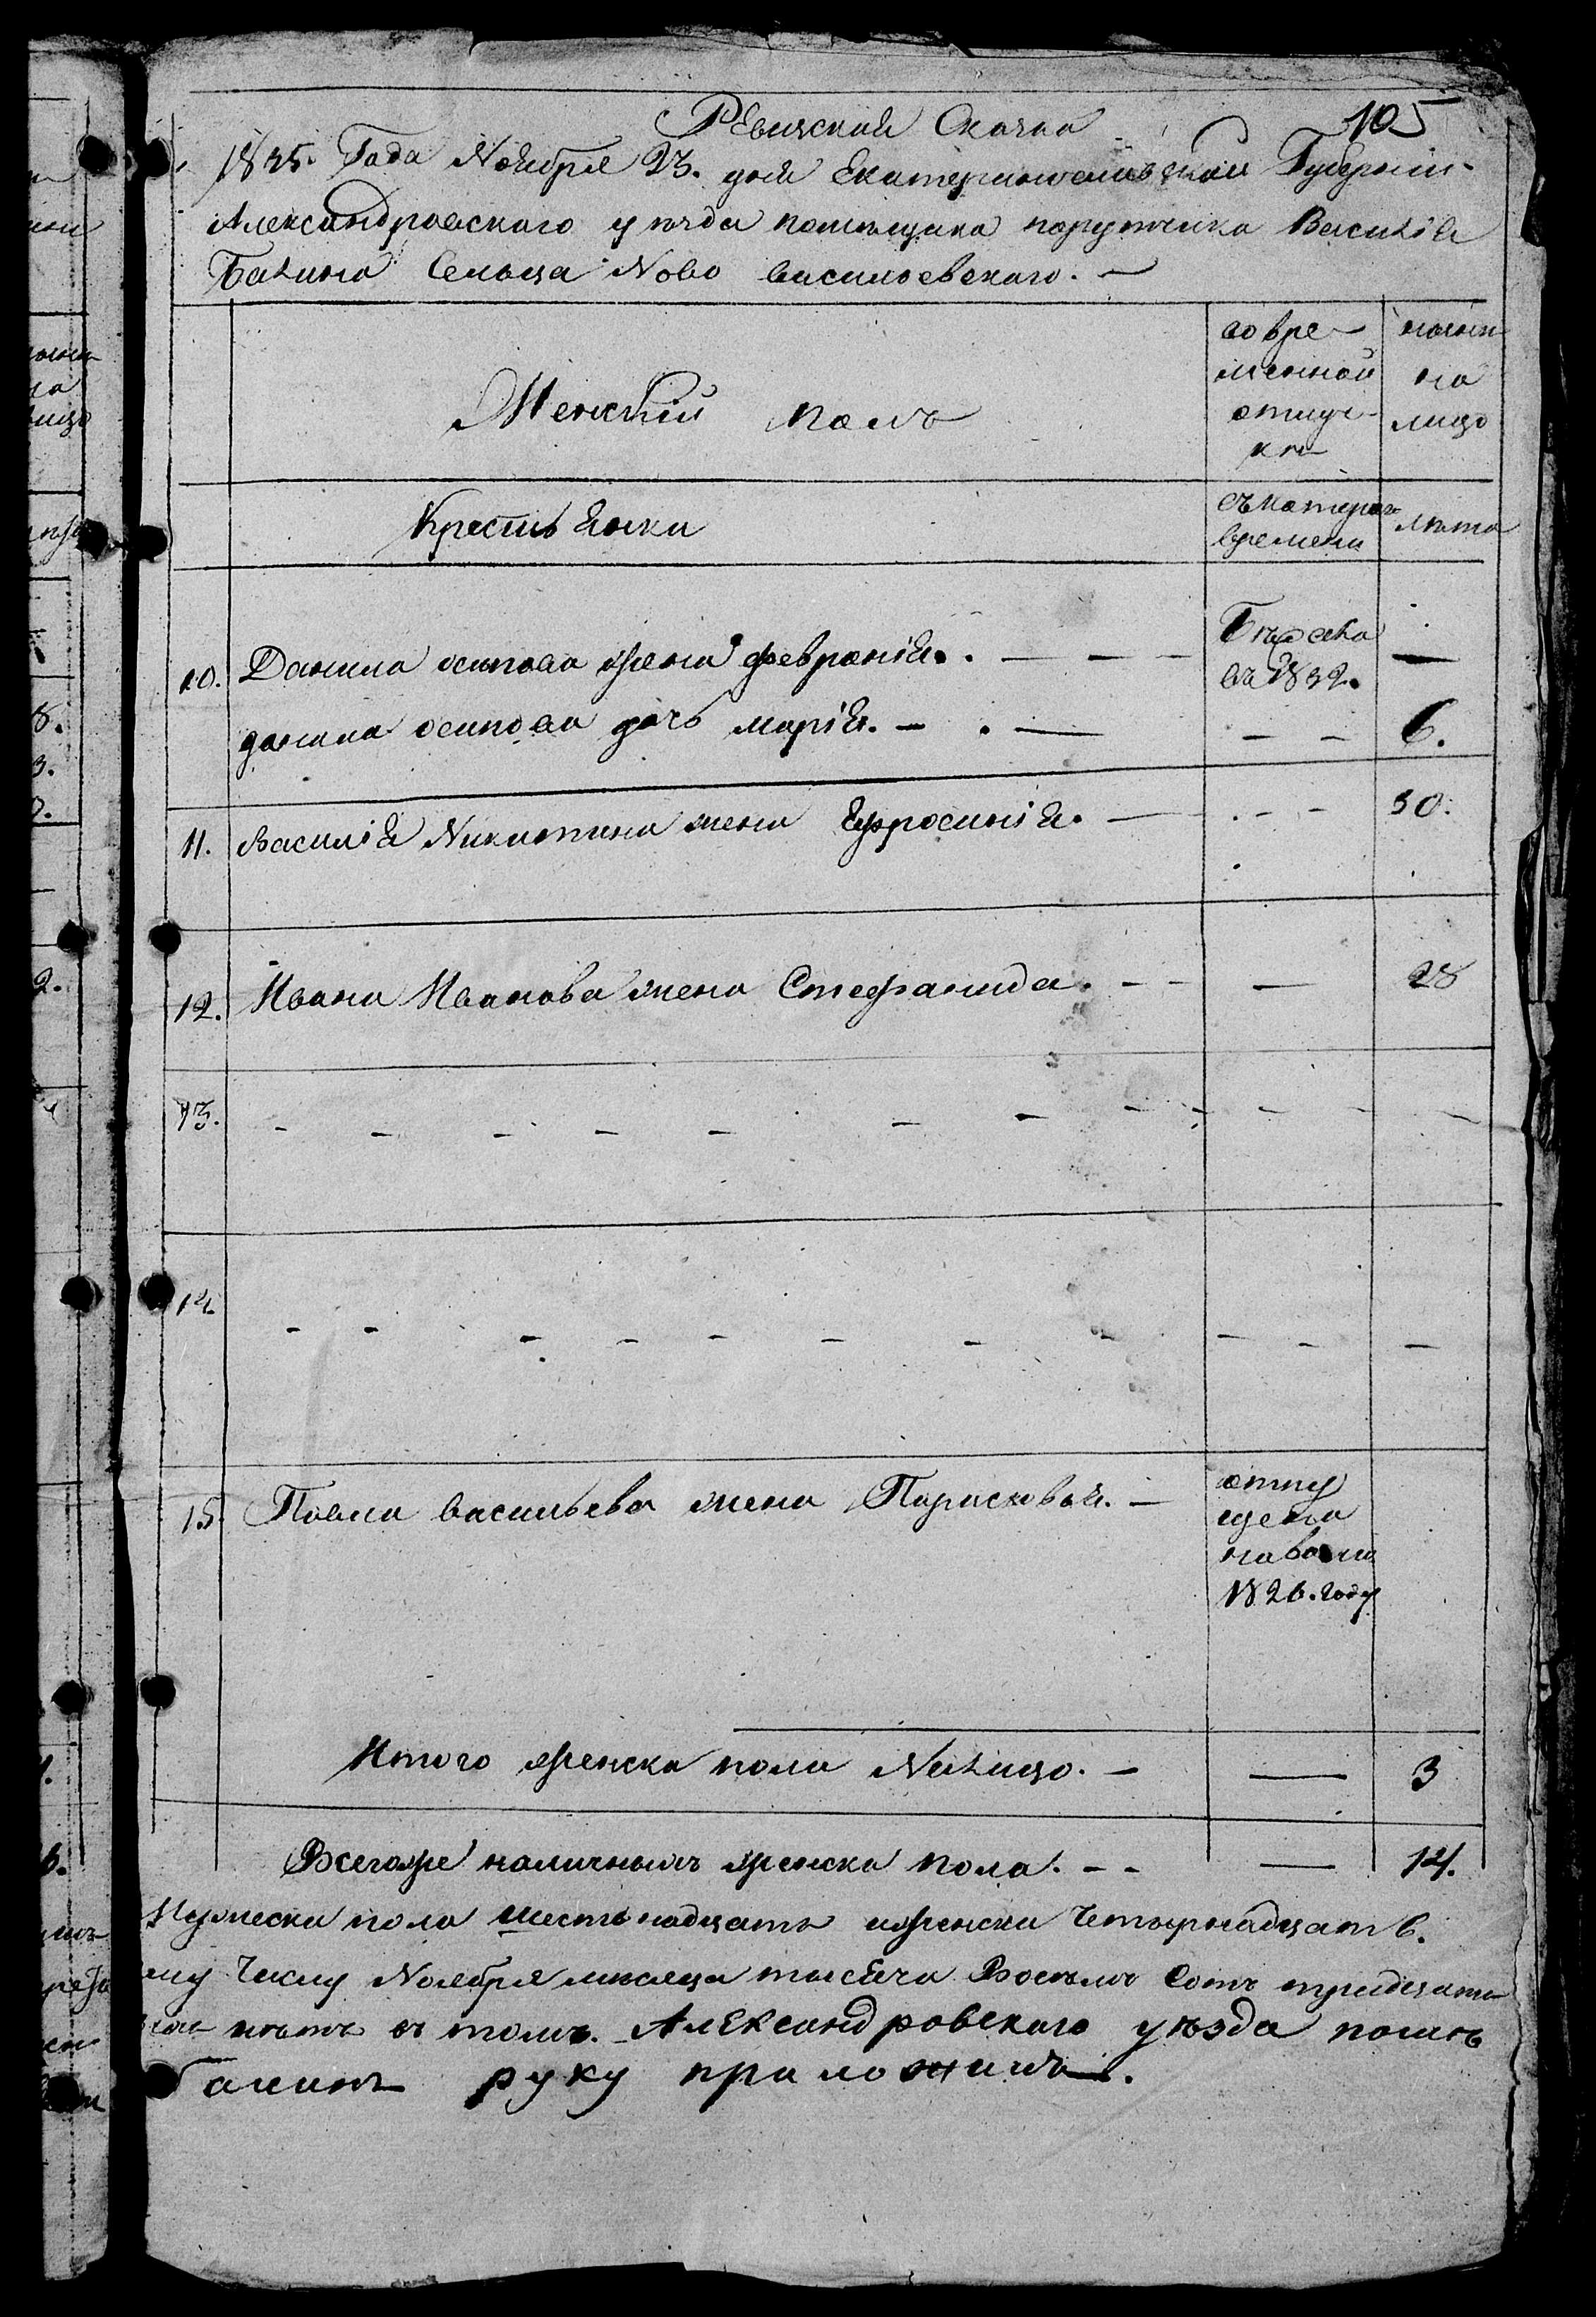 105
Ревизская Сказка
1835. Года Ноября 23. дня Екатеринославской Губернии
Александровскаго уѣзда помѣщика порутчика Василія
Бакина Сельца Ново васильевскаго. —
Женскій полъ
во вре-
менной
отлуч-
кѣ
нынѣ
на
лицо
Крестьянки
съ котораго
времени
лѣта
10. Данила осипова жена февранія. — — — Бѣжала —
въ 1832.
данила осипова дочь марія. — . — — — 6.
11. василія Никитина жена Ефросинія. — . - - 30.
12. Ивана Иванова жена Стефанида. - - — 28
13. - - - - - - - - - - -
14. - - - - - - - - - - -
15. Павла васильева жена Парасковья. — отпу
щена
наволю
1826. году
Итого женска пола Налицо. — — 3
Всегоже наличныхъ женска пола. - - — 14.
Мужеска пола шестьнадцать иженска Четырнадцать.
му Числу Ноября месяца тысяча Восемь Сотъ тридцать
нѣтъ въ томъ. Александровскаго уѣзда помѣ
Бакинъ руку приложилъ.
8.
3.
0.
2.